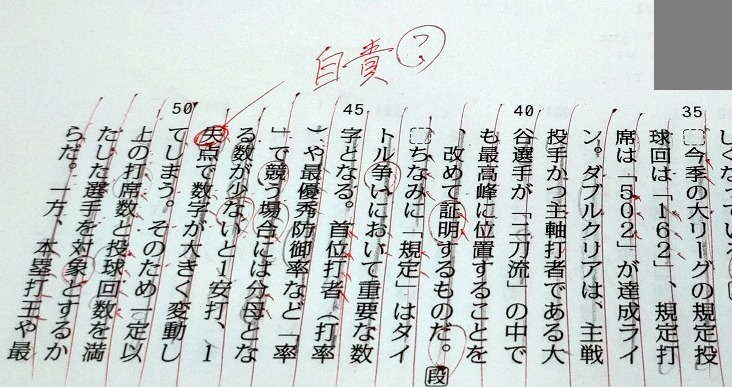 自責?
しくなっている
35
今季の大リーグの規定投
球回は「162」、規定打
席は「502」が達成ライ
ン。ダブルクリアは、主戦
投手かつ主軸打者である大
40
谷選手が「二刀流」の中で
も最高峰に位置することを
、改めて証明するものだ。
段
ちなみに「規定」はタイ
トル争いにおいて重要な数
45
字となる。首位打者（打率
）や最優秀防御率など「率
」で競う場合には分母とな
る数が少ないと1安打、1
失点で数字が大きく変動し
50
てしまう。そのため一定以
上の打席数と投球回数を満
たした選手を対象とするか
らだ。一方、本塁打王や最